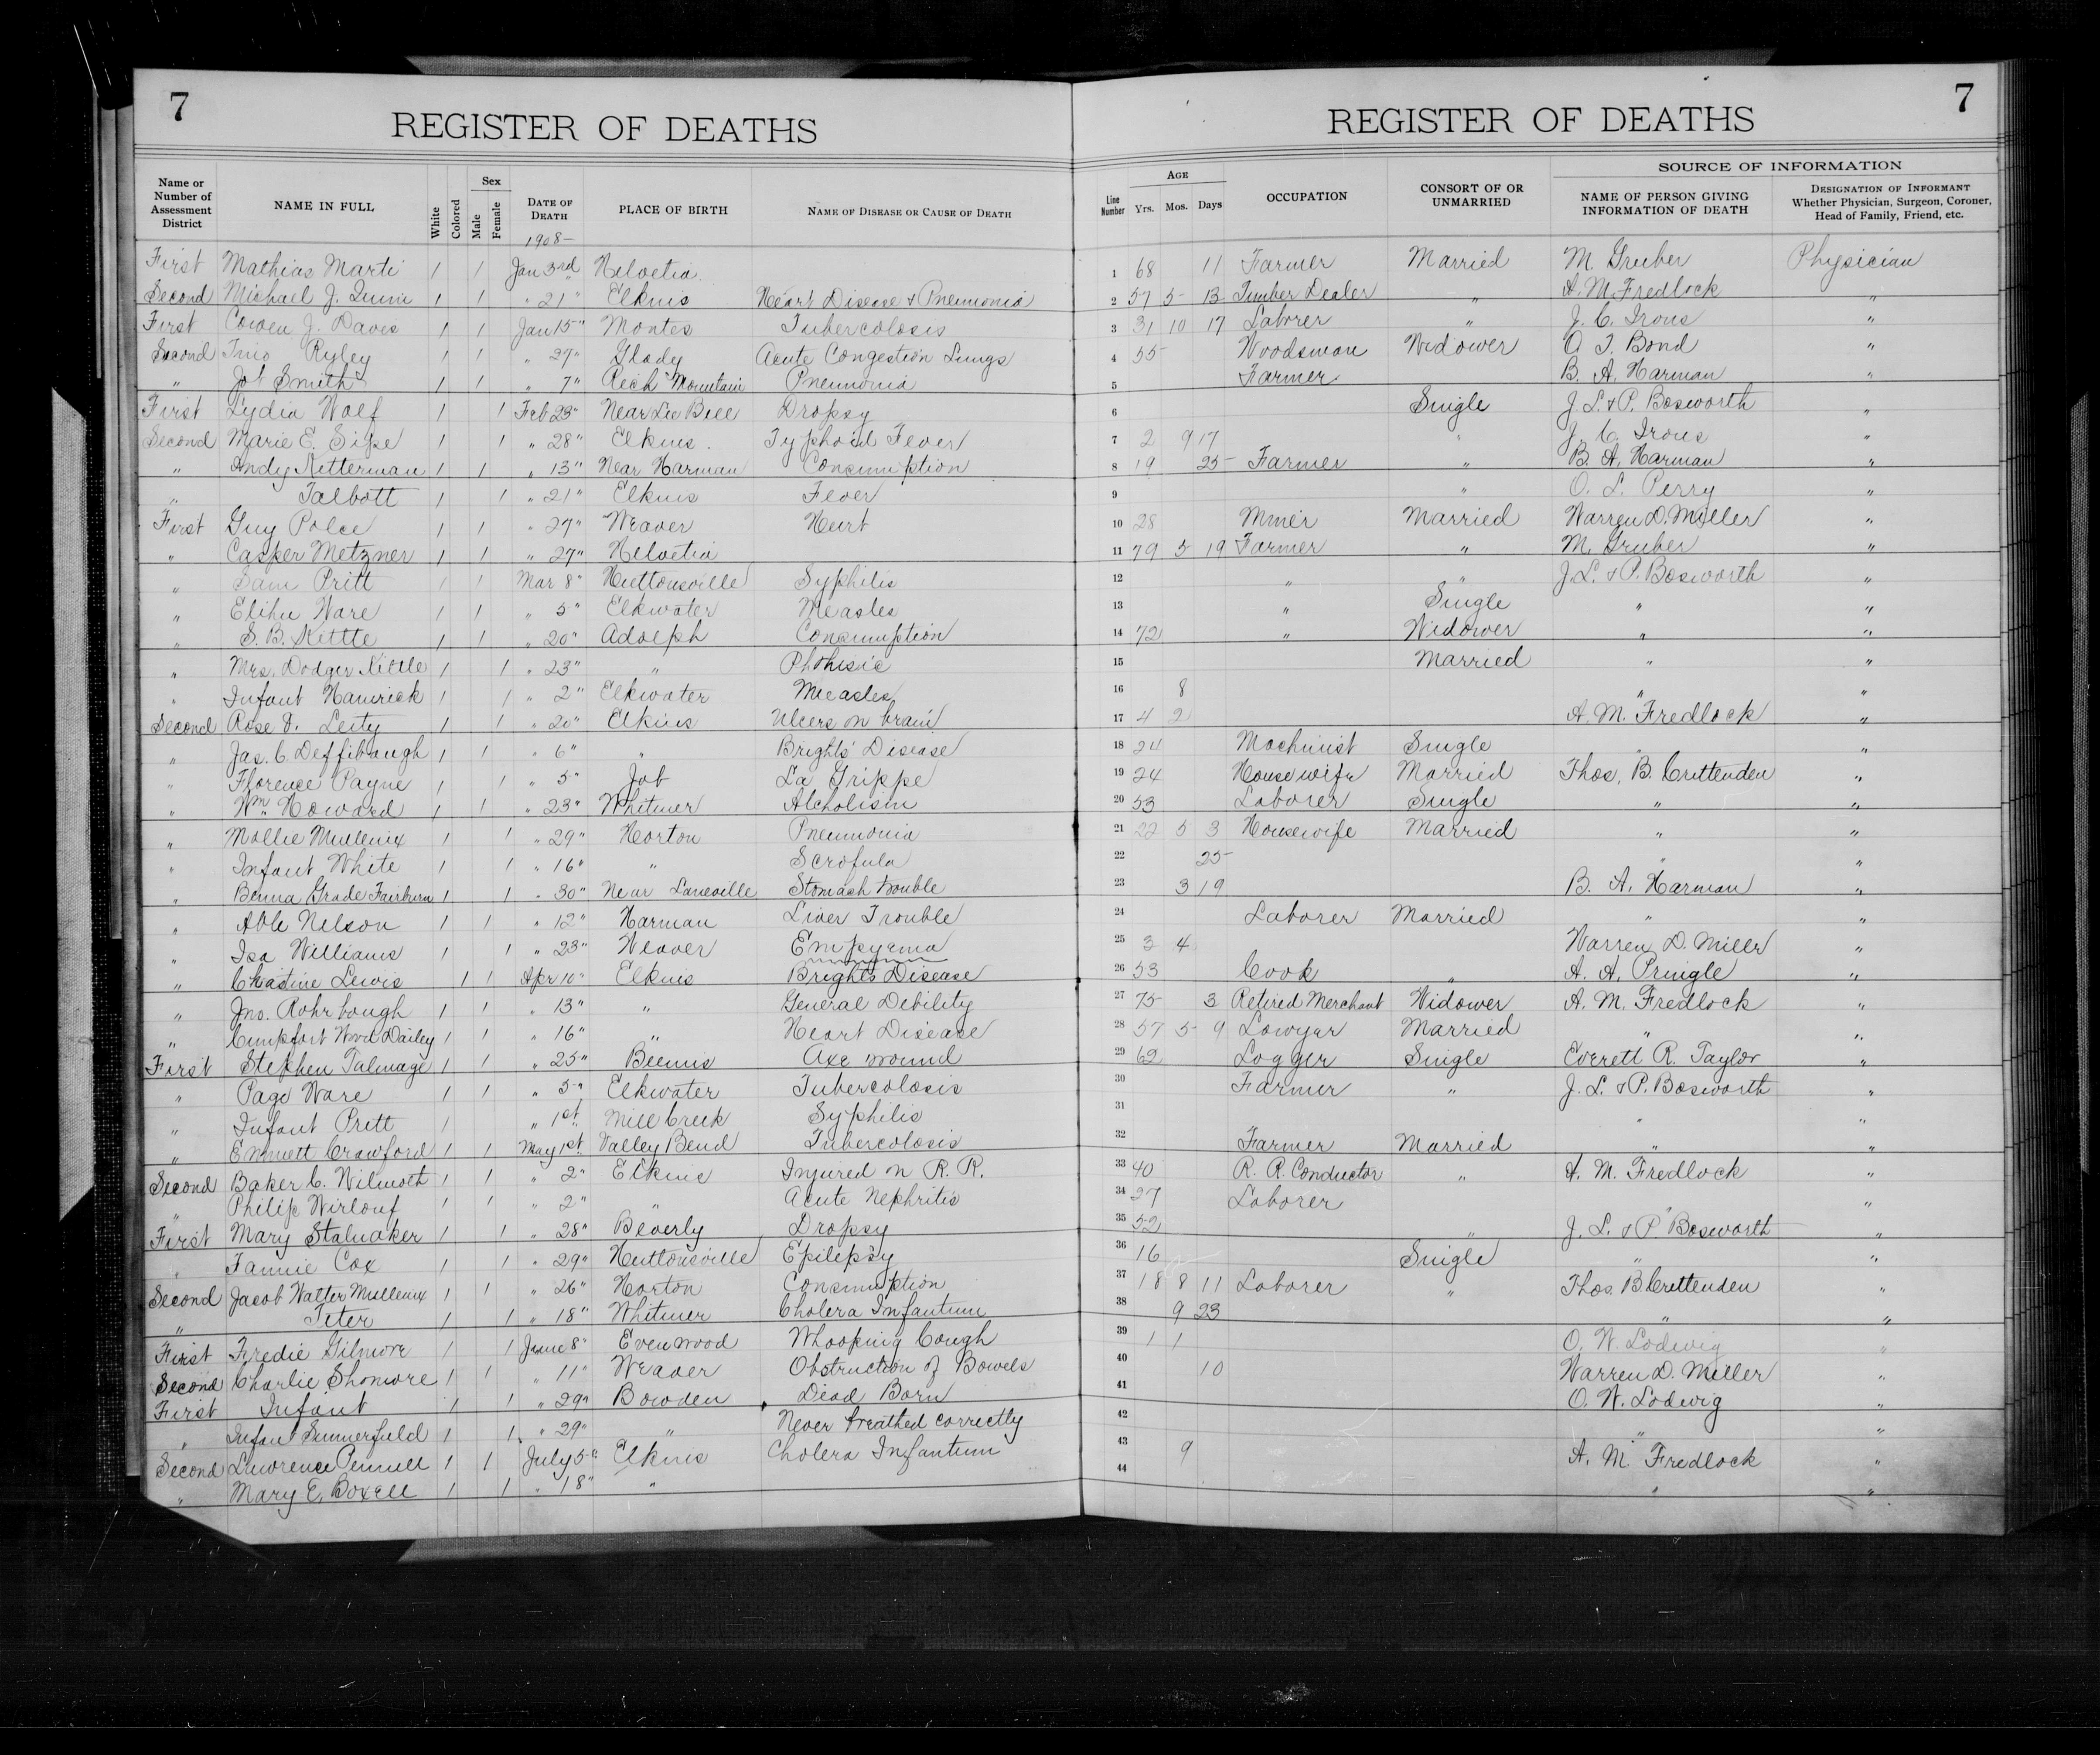 7
REGISTER OF DEATHS
Name or Number of Assessment District | NAME IN FULL | White | Colored | Sex | Male | Female | DATE OF DEATH | PLACE OF BIRTH | NAME OF DISEASE OR CAUSE OF DEATH
1908-
First Mathias Marti 1 1 Jan 3rd Helvetia
Second Michael J. Quinn 1 1 " 21" Elkins Heart Disease & Pneumonia
First Cowen J. Davis 1 1 Jan 15" Montes Tubercolosis
Second Ryley 1 1 " 27" Glady Acute Congestion Lungs
" Job Smith 1 1 " 7" Rich Mountain Pneumonia
First Lydia Wolf 1 1 Feb 23" Near Lee Bell Dropsy
Second Marie E. Sipe 1 1 " 28" Elkins. Typhoid Fever
" Andy Ketterman 1 1 " 13" Near Harman Consumption
" Talbott 1 1 " 21" Elkins Fever
First Guy Polce 1 1 " 27" Weaver Hurt
" Casper Metzner 1 1 " 27" Helvetia
" Sam Pritt 1 1 Mar 8" Huttonsville Syphilis
" Elihu Ware 1 1 " 5" Elkwater Measles
" S. B. Kittle 1 1 " 20" Adolph Consumption
" Mrs. Dodger Kittle 1 1 " 23" " Phthisic
" Infant Hamrick 1 1 " 2" Elkwater Measles
Second Rose D. Leity 1 1 " 20" Elkins Ulcers on brain
" Jas. C. Deffibaugh 1 1 " 6" " Brights' Disease
" Florence Payne 1 1 " 5" Job La Grippe
" Wm. Howard 1 1 " 23" Whitmer Alcholism
" Mollie Mullenix 1 1 " 29" Horton Pneumonia
" Infant White 1 1 " 16" " Scrofula
" Benna Grade Fairburn 1 1 " 30" Near Laneville Stomach trouble
" Able Nelson 1 1 " 12" Harman Liver Trouble
" Isa Williams 1 1 " 23" Weaver Empyema
" Chastine Lewis 1 1 Apr 10" Elkins Brights Disease
" Jno. Rohrbough 1 1 " 13" " General Debility
" Cumpfort Wood Dailey 1 1 " 16" " Heart Disease
First Stephen Talmage 1 1 " 25" Bemis Axe wound
" Page Ware 1 1 " 5" Elkwater Tubercolosis
" Infant Pritt 1 " 1st Mill Creek Syphilis
" Emmett Crawford 1 1 May 1st Valley Bend Tubercolosis
Second Baker C. Wilmoth 1 1 " 2" Elkins Injured on R. R.
" Philip Wirlouf 1 1 " 2" " Acute Nephritis
First Mary Stalnaker 1 1 " 28" Beverly Dropsy
" Fannie Cox 1 1 " 29" Huttonsville Epilepsy
Second Jacob Walter Mullenix 1 1 " 26" Horton Consumption
" Teter 1 1 " 18" Whitmer Cholera Infantum
First Fredie Gilmore 1 1 June 8" Evenwood Whooping Cough
Second Charlie Shomore 1 1 " 11" Weaver Obstruction of Bowels
First Infant 1 1 " 29" Bowden Dead Born
" Infant Summerfield 1 1 " 29" " Never breathed correctly
Second Lawrence Pennell 1 1 July 5" Elkins Cholera Infantum
" Mary E. Boxell 1 1 " 18" "
7
REGISTER OF DEATHS
Line Number | AGE | Yrs. | Mos. | Days | OCCUPATION | CONSORT OF OR UNMARRIED | SOURCE OF INFORMATION | NAME OF PERSON GIVING INFORMATION OF DEATH | DESIGNATION OF INFORMANT Whether Physician, Surgeon, Coroner, Head of Family, Friend, etc.
1 68 11 Farmer Married M. Gruber Physician
2 57 5 13 Timber Dealer " A. M. Fredlock "
3 31 10 17 Laborer " J. C. Irons "
4 55 Woodsman Widower O. T. Bond "
5 Farmer B. A. Harman "
6 Single J. L. & P. Bosworth "
7 2 9 17 " J. C. Irons "
8 19 25 Farmer " B. A. Harman "
9 " O. L. Perry "
10 28 Miner Married Warren D. Miller "
11 79 5 19 Farmer " M. Gruber "
12 " " J. L. & P. Bosworth "
13 " Single " "
14 72 " Widower " "
15 Married " "
16 8 " "
17 4 2 A. M. Fredlock "
18 24 Machinist Single " "
19 24 Housewife Married Thos. B. Crittenden "
20 53 Laborer Single " "
21 22 5 3 Housewife Married " "
22 25 " "
23 3 19 B. A. Harman "
24 Laborer Married " "
25 3 4 Warren D. Miller "
26 53 Cook " A. A. Pringle "
27 75 3 Retired Merchant Widower A. M. Fredlock "
28 57 5 9 Lawyer Married " "
29 62 Logger Single Everett R. Taylor "
30 Farmer " J. L. & P. Bosworth "
31 " "
32 Farmer Married " "
33 40 R. R. Conductor " A. M. Fredlock "
34 27 Laborer " "
35 52 " J. L. & P. Bosworth "
36 16 Single " "
37 18 8 11 Laborer " Thos. B. Crittenden "
38 9 23 " "
39 1 1 O. W. Lodwig "
40 10 Warren D. Miller "
41 O. W. Lodwig "
42 " "
43 9 A. M. Fredlock "
44 " "